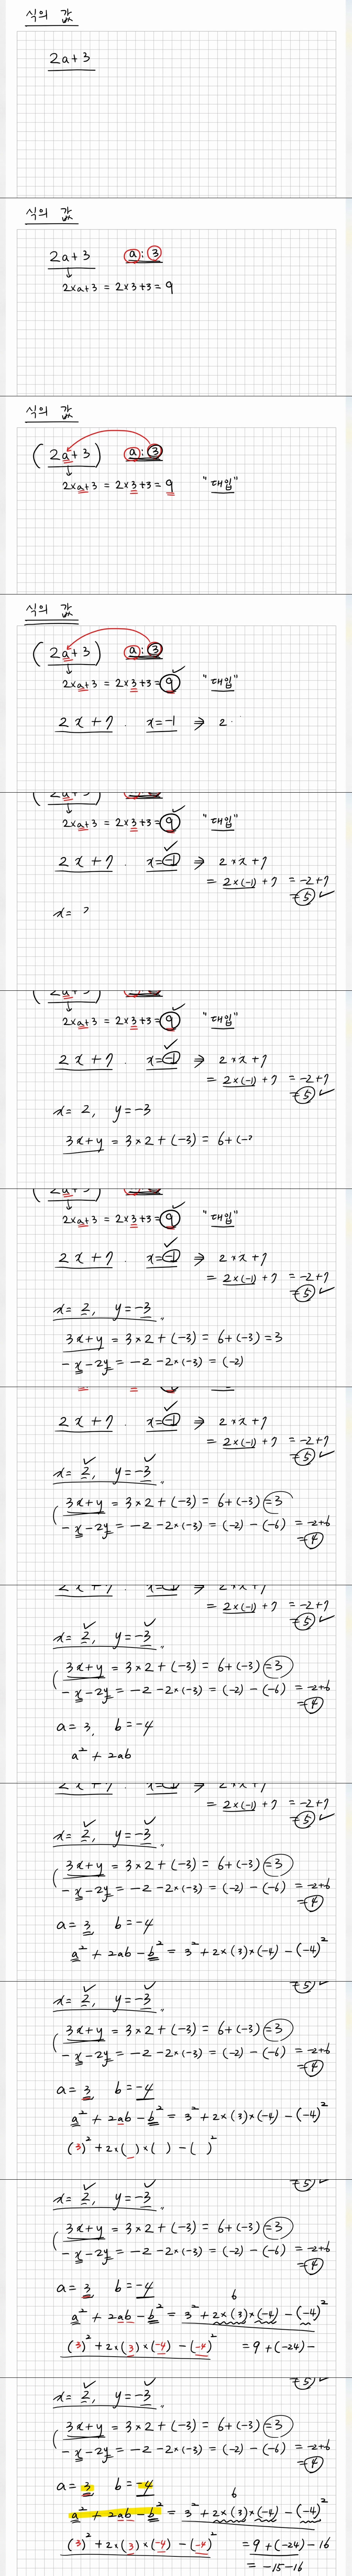 식의 값
2a+3
식의 값
2a+3 a : 3
2×a+3 = 2×3+3 = 9
식의 값
(2a+3) a : 3
2×a+3 = 2×3+3 = 9 "대입"
식의 값
(2a+3) a : 3
2×a+3 = 2×3+3 = 9 "대입"
2x+7 . x=-1 ⇒ 2
(2a+3)
2×a+3 = 2×3+3 = 9 "대입"
2x+7 . x=-1 ⇒ 2×x+7
= 2×(-1)+7 = -2+7
= 5
x= 2
(2a+3)
2×a+3 = 2×3+3 = 9 "대입"
2x+7 . x=-1 ⇒ 2×x+7
= 2×(-1)+7 = -2+7
= 5
x= 2, y=-3
3x+y = 3×2+(-3) = 6+(-3
(2a+3)
2×a+3 = 2×3+3 = 9 "대입"
2x+7 . x=-1 ⇒ 2×x+7
= 2×(-1)+7 = -2+7
= 5
x= 2, y=-3.
3x+y = 3×2+(-3) = 6+(-3) = 3
-x-2y = -2-2×(-3) = (-2)
2x+7 . x=-1 ⇒ 2×x+7
= 2×(-1)+7 = -2+7
= 5
x= 2, y=-3.
3x+y = 3×2+(-3) = 6+(-3) = 3
-x-2y = -2-2×(-3) = (-2)-(-6) = -2+6
= 4
2x+7 . x=-1 ⇒ 2×x+7
= 2×(-1)+7 = -2+7
= 5
x= 2, y=-3.
3x+y = 3×2+(-3) = 6+(-3) = 3
-x-2y = -2-2×(-3) = (-2)-(-6) = -2+6
= 4
a= 3, b=-4
a² + 2ab
2x+7 . x=-1 ⇒ 2×x+7
= 2×(-1)+7 = -2+7
= 5
x= 2, y=-3.
3x+y = 3×2+(-3) = 6+(-3) = 3
-x-2y = -2-2×(-3) = (-2)-(-6) = -2+6
= 4
a= 3 b=-4
a² + 2ab - b² = 3²+2×(3)×(-4)-(-4)²
= 5
x= 2, y=-3.
3x+y = 3×2+(-3) = 6+(-3) = 3
-x-2y = -2-2×(-3) = (-2)-(-6) = -2+6
= 4
a= 3 b=-4
a² + 2ab - b² = 3²+2×(3)×(-4)-(-4)²
(3)²+2×( )×( )-( )²
= 5
x= 2, y=-3.
3x+y = 3×2+(-3) = 6+(-3) = 3
-x-2y = -2-2×(-3) = (-2)-(-6) = -2+6
= 4
a= 3 b=-4
6
a² + 2ab - b² = 3²+2×(3)×(-4)-(-4)²
(3)²+2×(3)×(-4)-(-4)² = 9+(-24)-
= 5
x= 2, y=-3.
3x+y = 3×2+(-3) = 6+(-3) = 3
-x-2y = -2-2×(-3) = (-2)-(-6) = -2+6
= 4
a= 3 b=-4
6
a² + 2ab - b² = 3²+2×(3)×(-4)-(-4)²
(3)²+2×(3)×(-4)-(-4)² = 9+(-24)-16
= -15-16